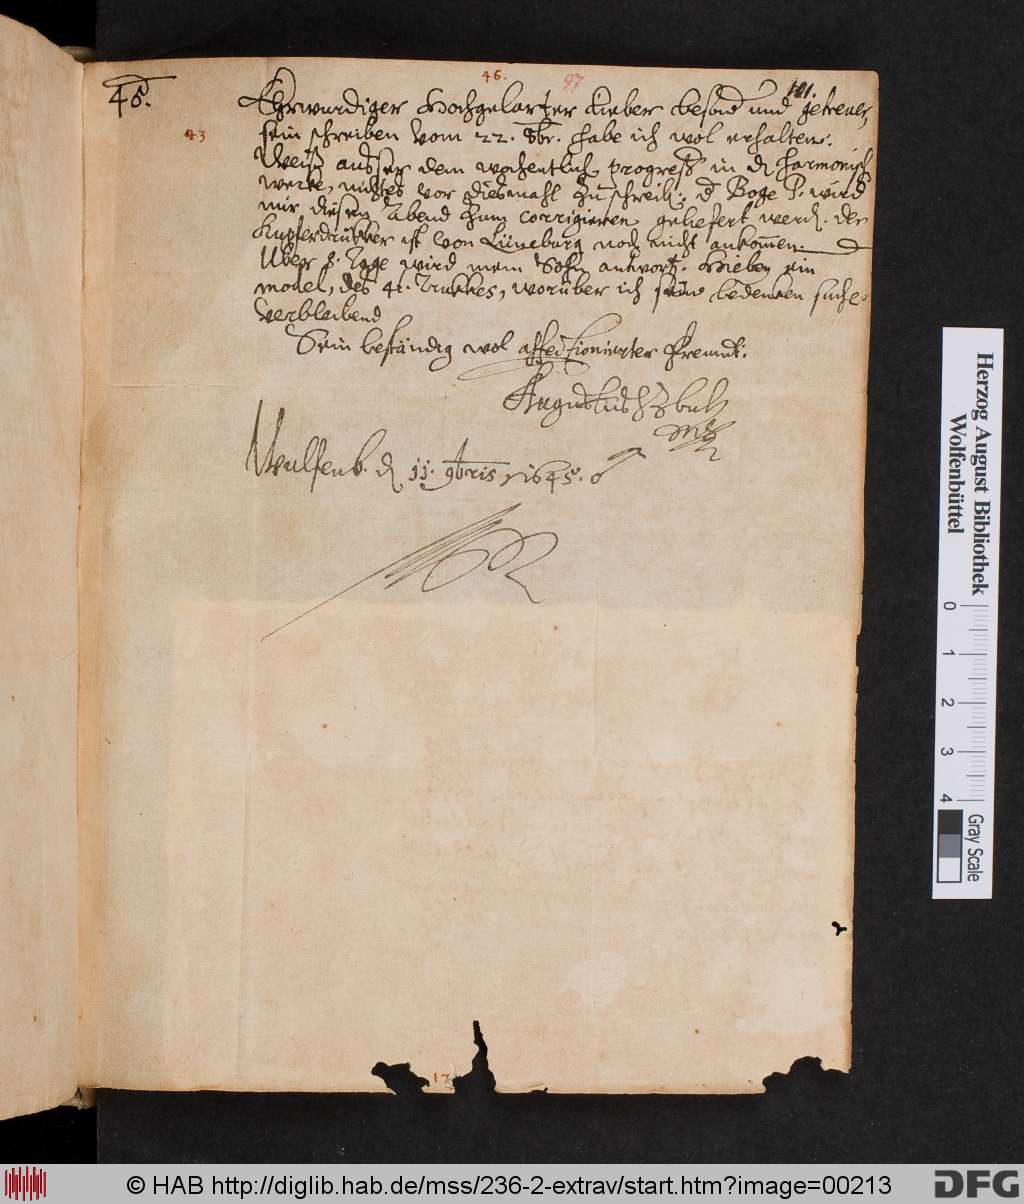 45.
46.
97
101.
43
Ehrwurdiger Hochgelarter Lieber besond und getreuer,
sein schreiben vom 22. 8br. habe ich wol erhalten.
Weiß ausser dem wochentlich progress in d Harmonisch
werke, nichtes vor diesmahl zu schreib: d Boge P. wird
mir diesen Abend zum corrigieren geliefert werd. der
Kupferdrukker ist von Lüneburg noch nicht ankomen.
Uber 8. Tage wird mein Sohn antwort. Hiebey ein
model, des 4t. Trukkes, worüber ich sein bedenken suche.
Verbleibend
Sein beständig wol affectionirter Freund:
Augustus HZBuL
mp
Wulfenb. d 11. 9bris 1645.
17
Herzog August Bibliothek
Wolfenbüttel
0 1 2 3 4
Gray Scale
© HAB http://diglib.hab.de/mss/236-2-extrav/start.htm?image=00213
DFG